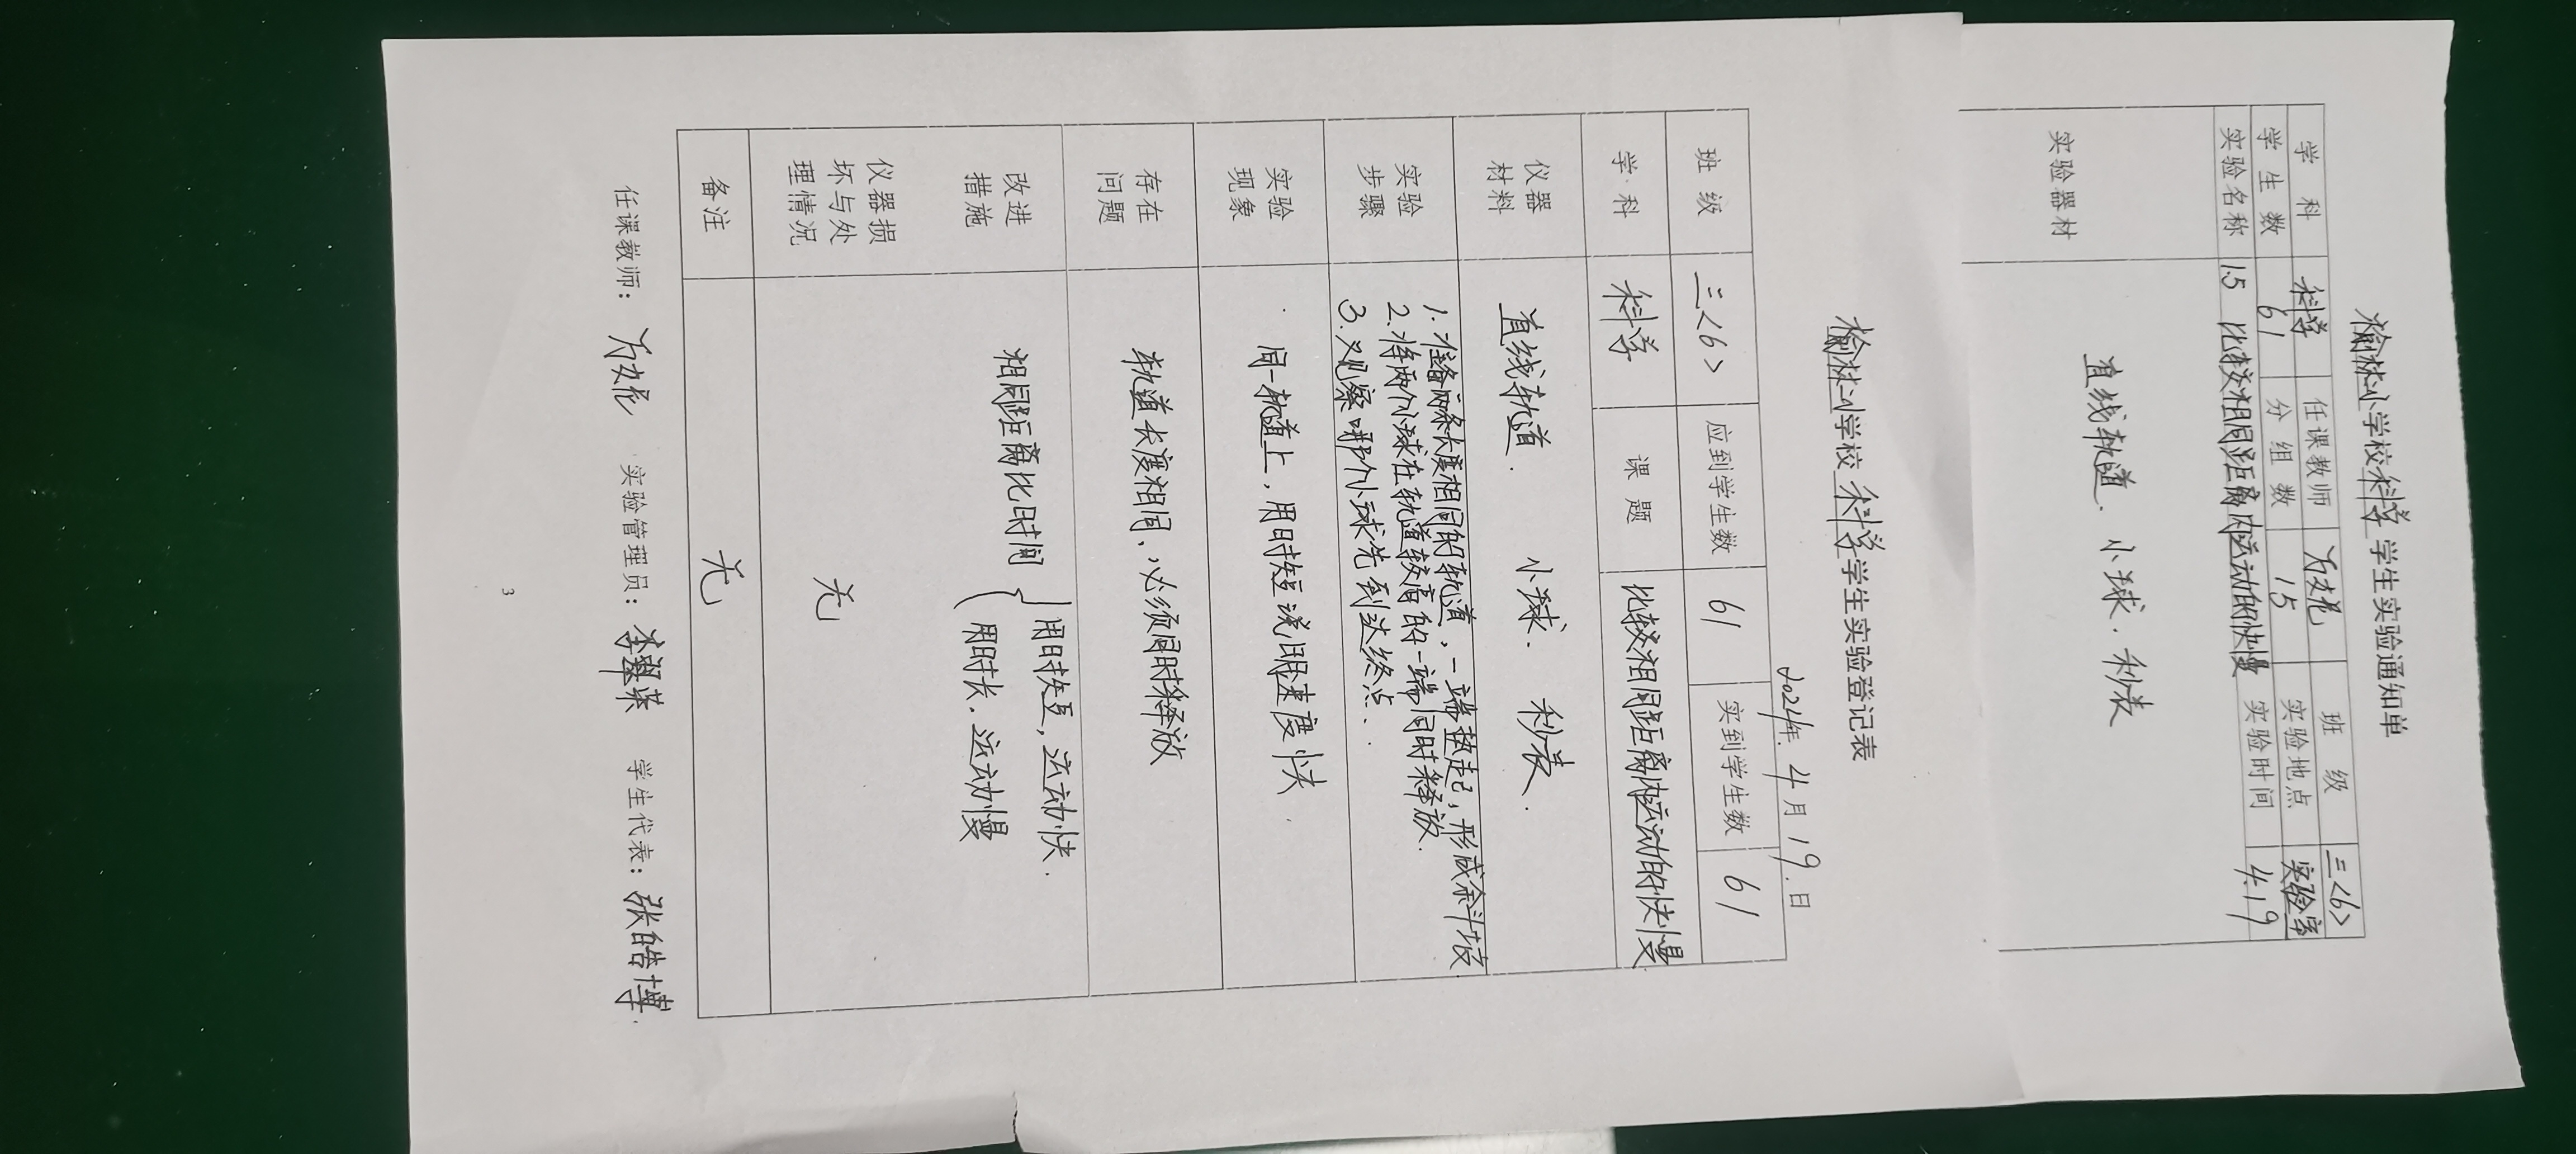 榆林小学校科学学生实验通知单
学 科 科学 任课教师 班 级 三<6>
学 生 数 61 分 组 数 15 实验地点 实验室
实验名称 1.5 比较相同距离内运动的快慢 实验时间 4.19
实验器材 直线轨道、小球、秒表
榆林小学校科学学生实验登记表
2024年 4月 19日
班 级 三<6> 应到学生数 61 实到学生数 61
学 科 科学 课 题 比较相同距离内运动的快慢
仪器
材料
直线轨道、 小球、 秒表.
实验
步骤
1.准备两条长度相同的轨道,一端垫起,形成余斗坡
2.将两个小球在轨道较高的一端同时释放.
3.观察哪个小球先到达终点.
实验
现象
同一轨道上,用时短说明速度快.
存在
问题
轨道长度相同,必须同时释放
改进
措施
相同距离比时间
用时短,运动快.
用时长,运动慢
仪器损
坏与处
理情况
无
备注 无
任课教师: 实验管理员:李翠英 学生代表:张皓博.
3